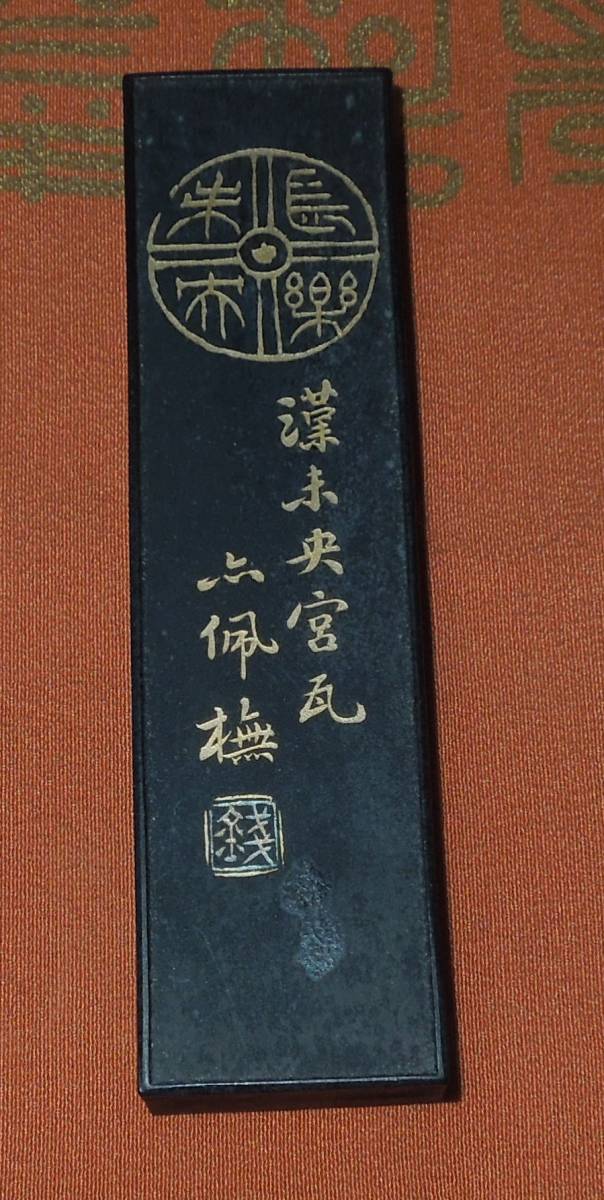 長樂
未央
漢未央宮瓦
佩橅